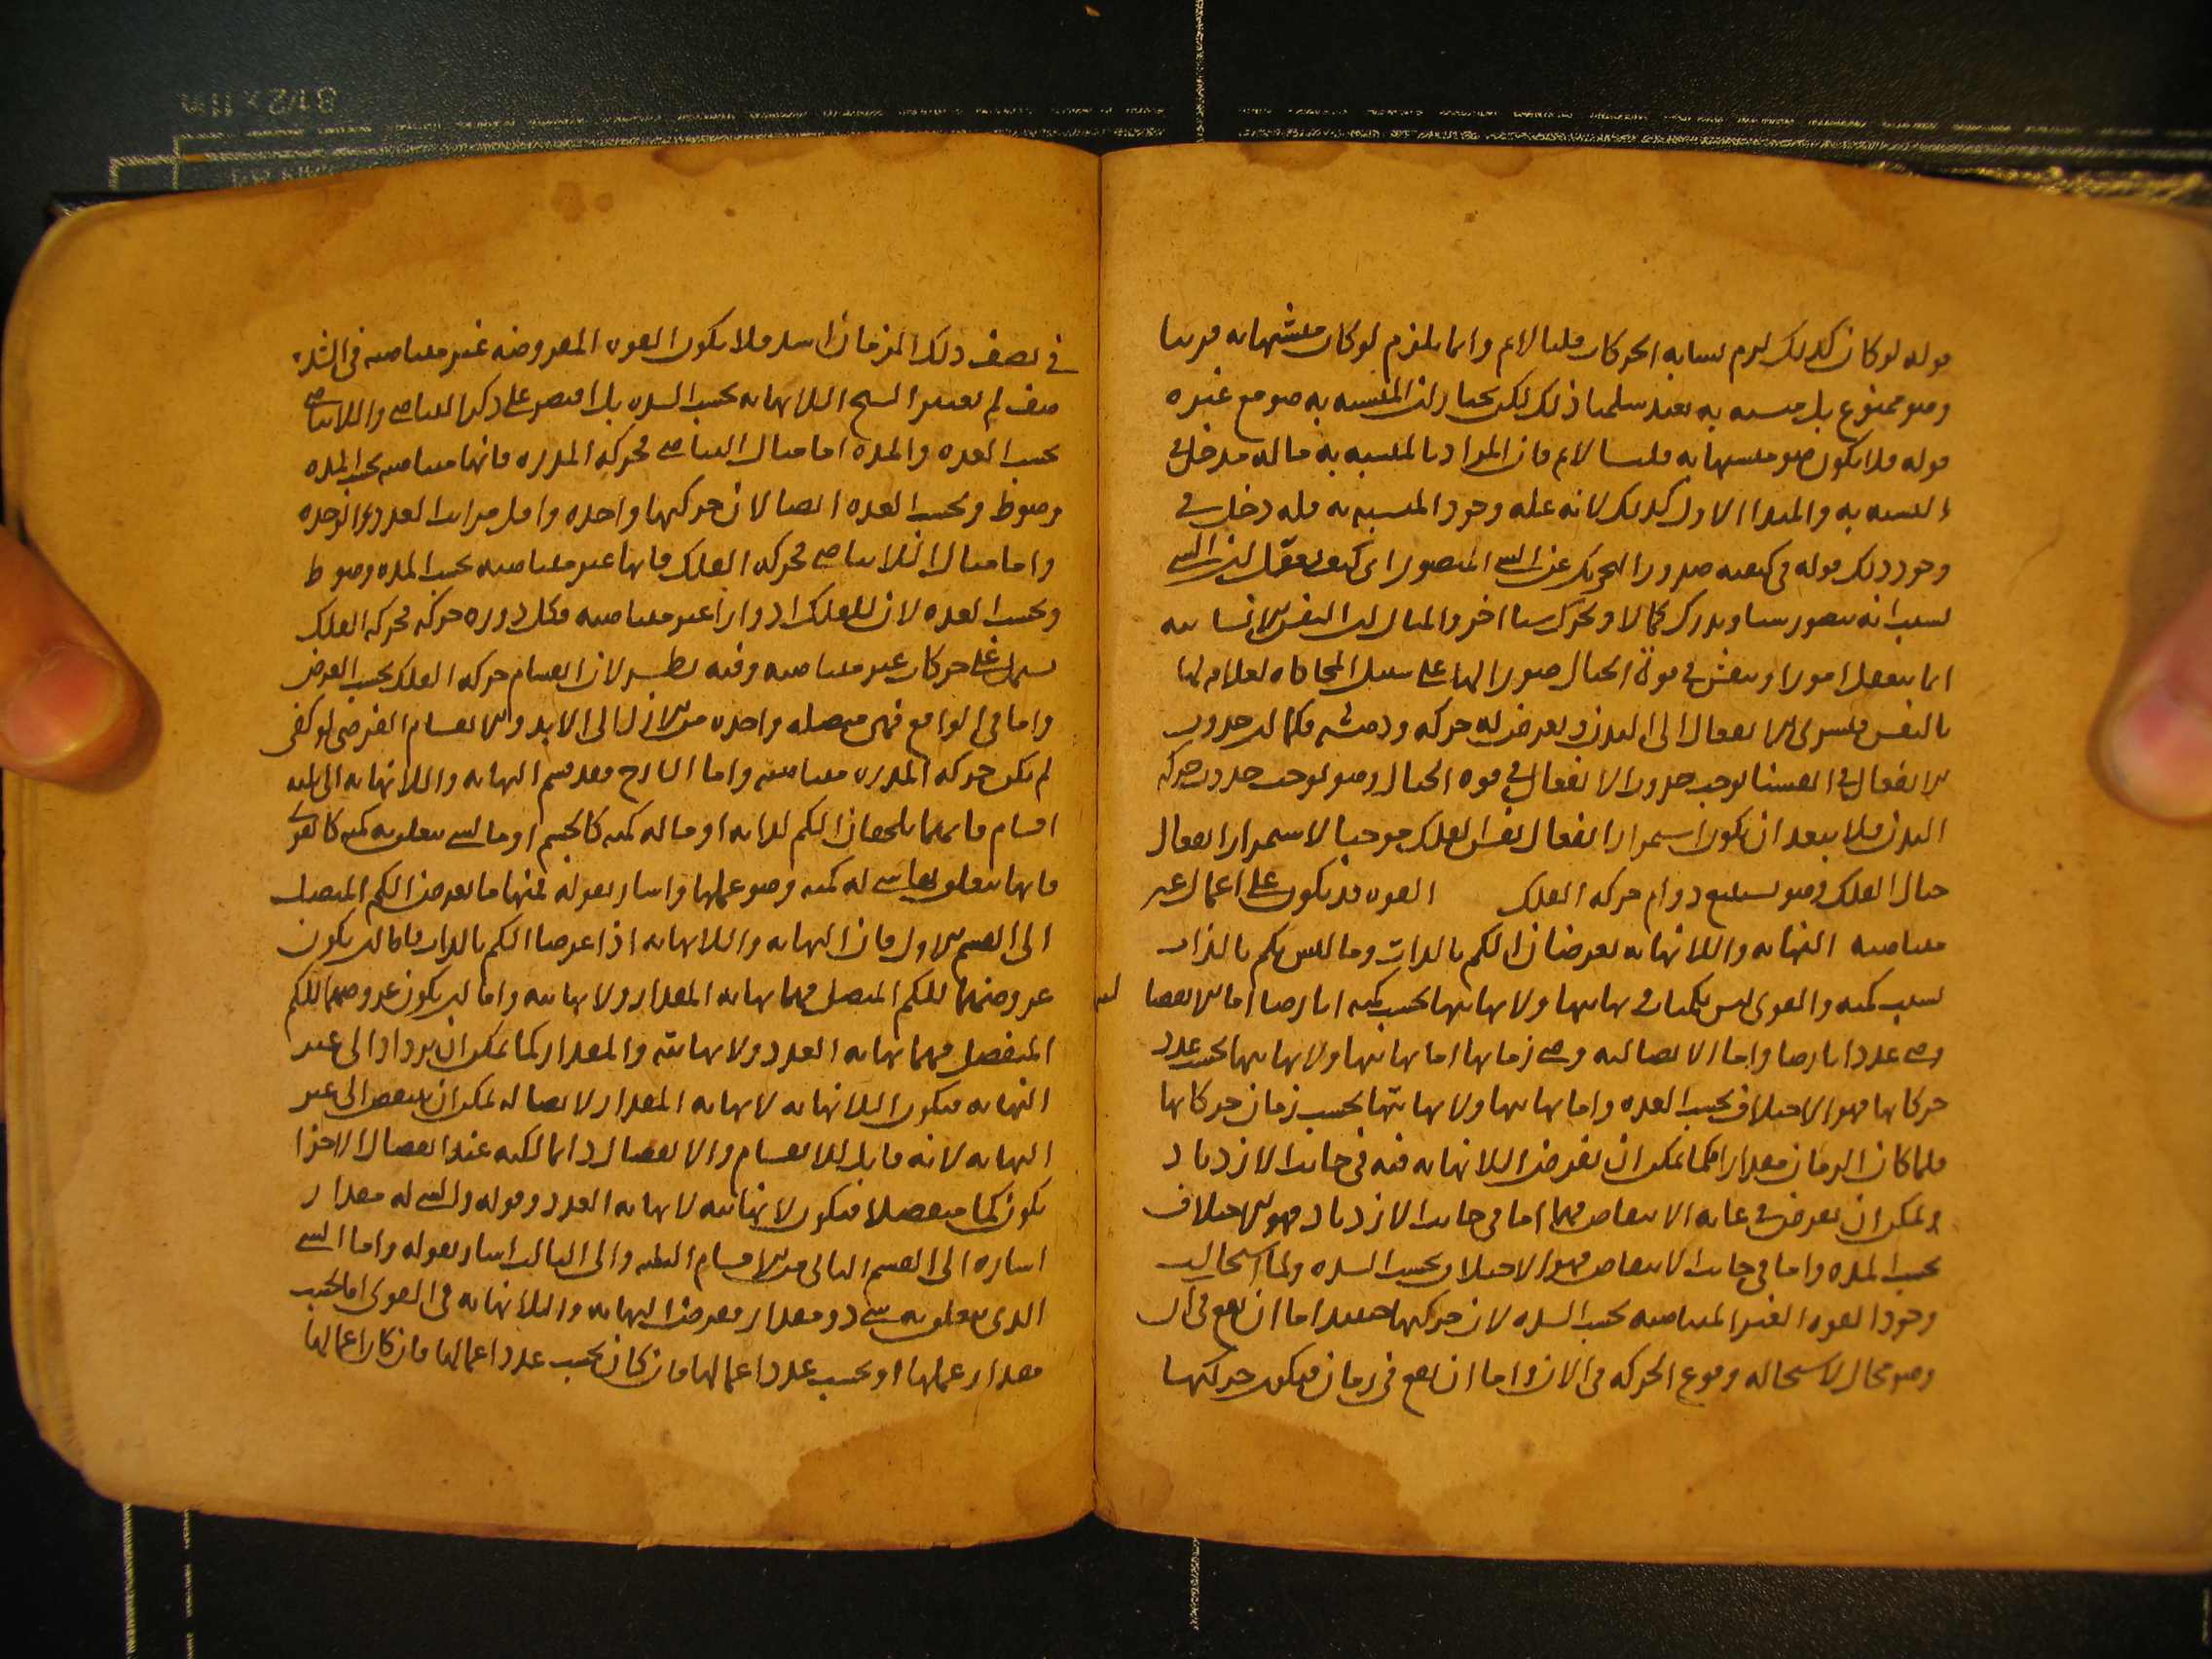 قوله لو كان كذلك لزم تشابه الحركات قلنا لا نم وانما يلزم لو كان متشبها به قريبا
وهو ممنوع بل متشبه به بعيد سلمنا ذلك لكن نختار ان المتشبه به هو مع غيره
قوله فلا يكون هو متشبها به قلنا لا نم فان المراد بالمتشبه به ما له مدخل في
التشبه به والمبدا الاول كذلك لانه علة وجود المتشبه به فله دخل في
وجود ذلك قوله في كيفية صدور التحريك عن الشي المتصور اى كيف يعقل ان الشي
بسبب انه يتصور شيا ويدرك كمالا وتحرك شيا اخر والمثال ان النفس الانسانية
انما يتعقل امورا وينتقش في قوة الخيال صور لها على سبيل المحاكاه لعلاقة لها
بالنفس فيسرى الانفعال الى البدن ويعرض له حركة ودهشه فكما ان حدوث
الانفعال في انفسنا يوجب حدوث الانفعال في قوة الخيال وهو يوجب حدوث حركة
البدن فلا يبعد ان يكون استمرار انفعال نفس الفلك موجبا لاستمرار انفعال
خيال الفلك وهو يستتبع دوام حركة الفلك القوة قد يكون على اعمال غير
متناهية النهاية واللانهاية يعرضان الكم بالذات وما ليس بكم بالذات
بسبب كمية والقوى ليس بكميات في نهايتها ولا نهايتها بحسب كمية اثارها اما الانفصا لية
وهي عدد اثارها واما الاتصالية وهي زمانها اما نهايتها ولا نهايتها بحسب عدد
حركاتها فهو الاختلاف بحسب العدة واما نهايتها ولا نهايتها بحسب زمان حركاتها
فلما كان الزمان مقدارا فكما يمكن ان يفرض اللانهاية فيه في جانب الازدياد
ويمكن ان يعرض في غاية الانتقاص فهما اما في جانب الازدياد فهو الاختلاف
بحسب المدة واما في جانب الانتقاص فهو الاختلاف بحسب الشدة ولما استحال
وجود القوة الغير المتناهية بحسب الشدة لان حركتها حينئذ اما ان يقع في آن
وهو محال لاستحالة وقوع الحركة في الان واما ان يقع في زمان فيكون حركتها
في نصف ذلك الزمان اشد فلا يكون القوة المفروضة غير متناهية في الشدة
هف لم يعتبر الشيخ اللانهاية بحسب الشدة بل اقتصر على ذكر التناهي واللاتناهي
بحسب العدة والمدة اما مثال التناهي فحركة المدرة فانها متناهية بحسب المدة
وهو ظ وبحسب العدة ايضا لان حركتها واحدة واقل مراتب العدد الوحدة
واما مثال اللاتناهي فحركة الفلك فانها غير متناهية بحسب المدة وهو ظ
وبحسب العدة لان للفلك ادوارا غير متناهية فكل دورة حركة فحركة الفلك
يشتمل على حركات غير متناهية وفيه نظر لان انقسام حركة الفلك بحسب الفرض
واما في الواقع فهي متصلة واحدة من الازل الى الابد والانقسام الفرضى لو كفى
لم يكن حركة المدرة متناهية واما الشارح فقد قسم النهاية واللانهاية الى ثلثة
اقسام فانهما يلحقان الكم لذاته او ما له كمية كالجسم او ما لشى يتعلق به كمية كالقوى
فانها يتعلق بها شى له كمية وهو عملها واشار بقوله فمنها ما يعرض الكم المتصل
الى القسم الاول فان النهاية واللانهاية اذا عرضا الكم بالذات فاما ان يكون
عروضهما للكم المتصل فهما نهاية المقدار ولا نهايته واما ان يكون عروضهما للكم
المنفصل فهما نهاية العدد ولا نهايته والمقدار كما يمكن ان يزداد الى غير
النهاية فيكون اللانهاية لا نهاية المقدار لاتصاله يمكن ان ينتقص الى غير
النهاية لانه قابل للانقسام والانفصال دائما لكنه عند انفصال الاجزا
يكون كما منفصلا فيكون لا نهايته لا نهاية العدد وقوله والشي له مقدار
اشارة الى القسم الثانى من الاقسام الثلثة والى الثالث اشار بقوله واما الشي
الذى يتعلق به شي ذو مقدار فعرض النهاية واللانهاية في القوى اما بحسب
مقدار عملها او بحسب عدد اعمالها فان كان بحسب عدد اعمالها فان كان اعمالها